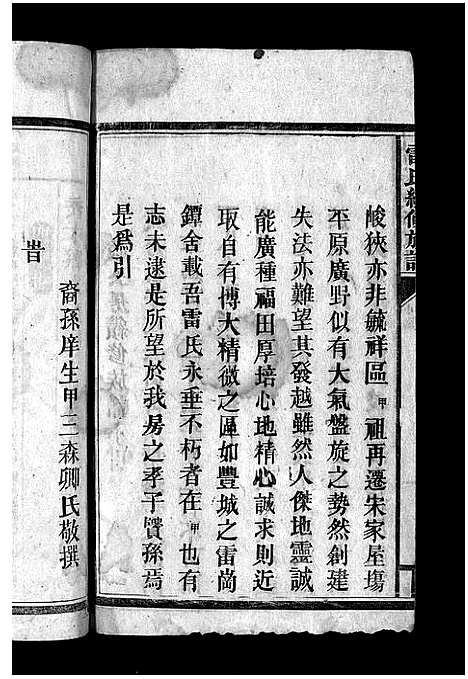 雷氏續修族譜
峻狹亦非毓祥區甲祖再遷朱家屋塲
平原廣野似有大氣盤旋之勢然創建
失法亦難望其發越雖然人傑地靈誠
能廣種福田厚培心地精心誠求則近
取自有博大精微之區如豐城之雷崗
鐔舍載吾雷氏永垂不朽者在甲也有
志未逮是所望於我房之孝子賢孫焉
是爲引
裔孫庠生甲三森卿氏敬撰
昔